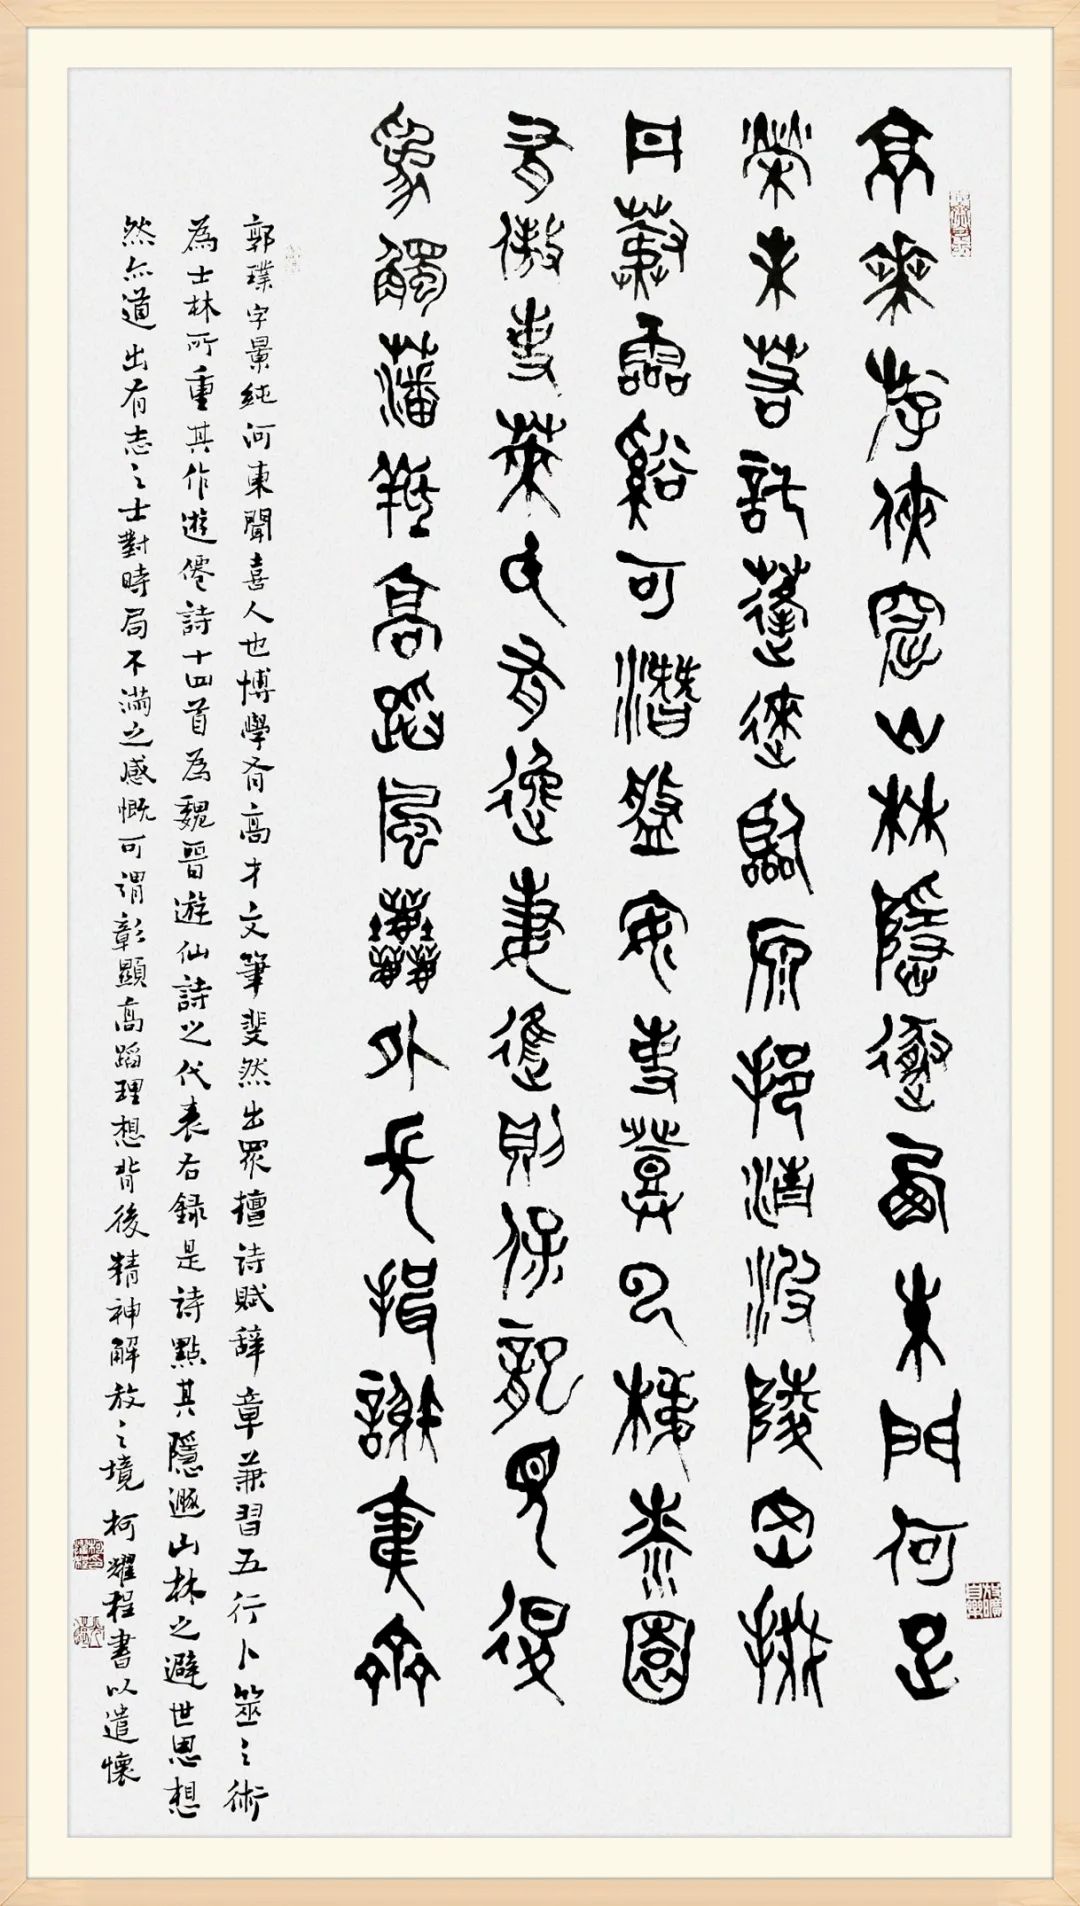 京華游俠窟山林隱遯棲朱門何足
榮未若託蓬萊臨原挹清波陵岡掇
丹荑靈谿可潛盤安事登雲梯漆園
有傲吏萊氏有逸妻進則保龍見退
為觸藩羝高蹈風塵外長揖謝夷齊
郭璞字景純河東聞喜人也博學有高才文筆斐然出眾檀詩賦辭章兼習五行卜筮之術
為士林所重其作遊僊詩十四首為魏晉遊仙詩之代表右録是詩點其隱遯山林之避世思想
然亦道出有志之士對時局不滿之感慨可謂彰顯高蹈理想背後精神解放之境柯耀程書以遣懷